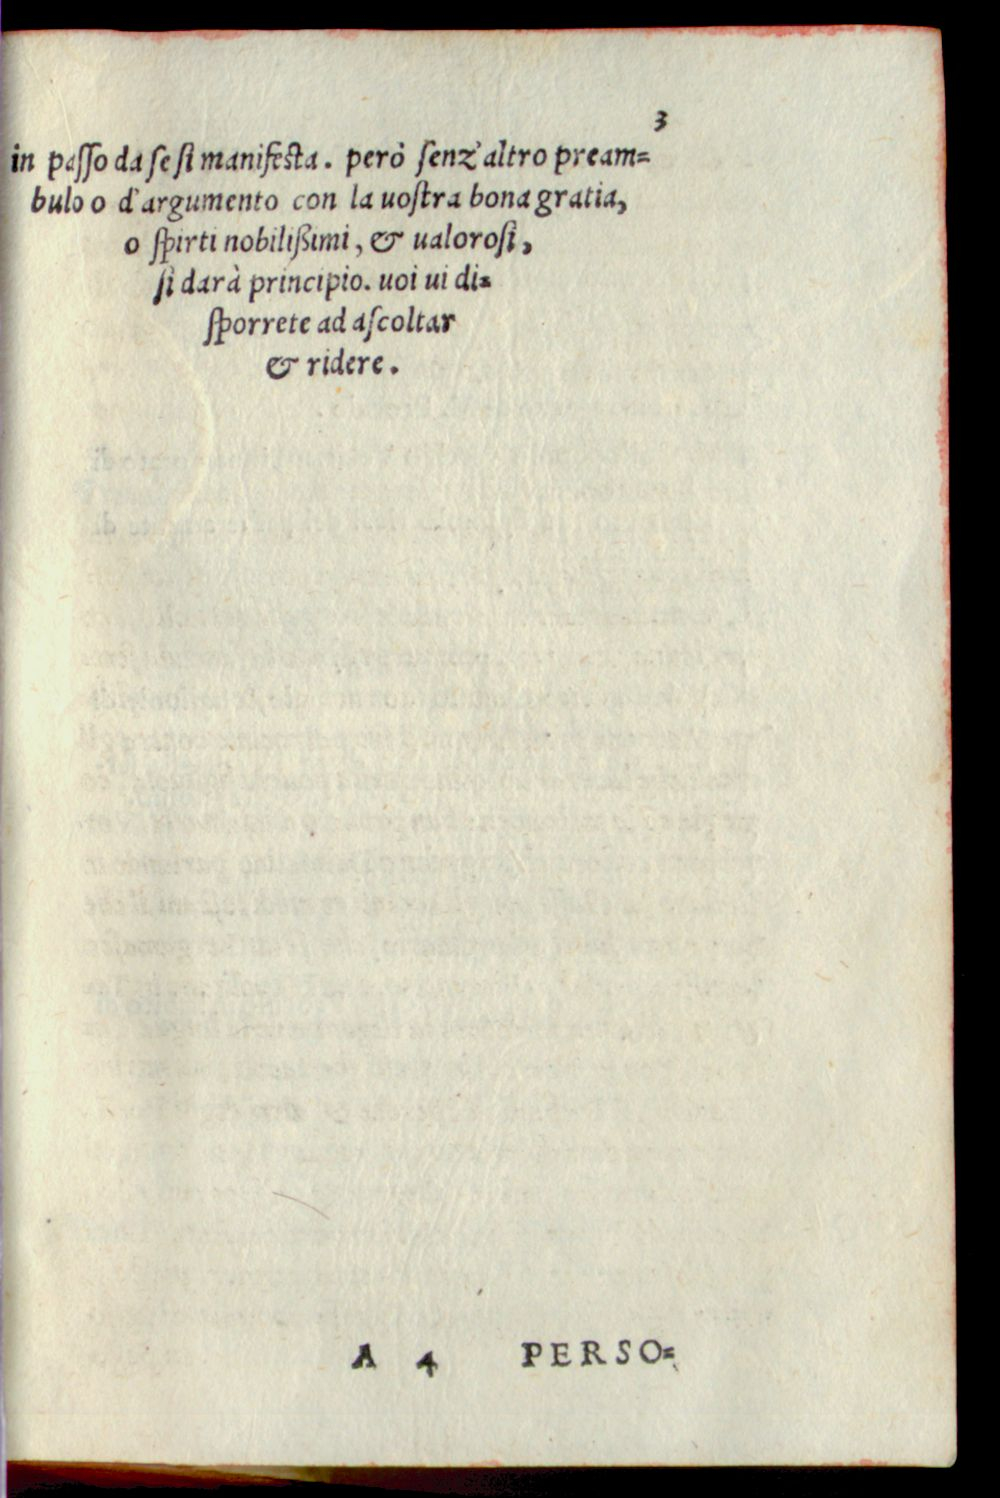 3
in paſſo da ſe ſi manifeſta. però ſenz'altro pream=
bulo o d'argumento con la uoſtra bona gratia,
o ſpirti nobilißimi, & ualoroſi,
ſi darà principio. uoi ui di=
ſporrete ad aſcoltar
& ridere.
A 4 PERSO=